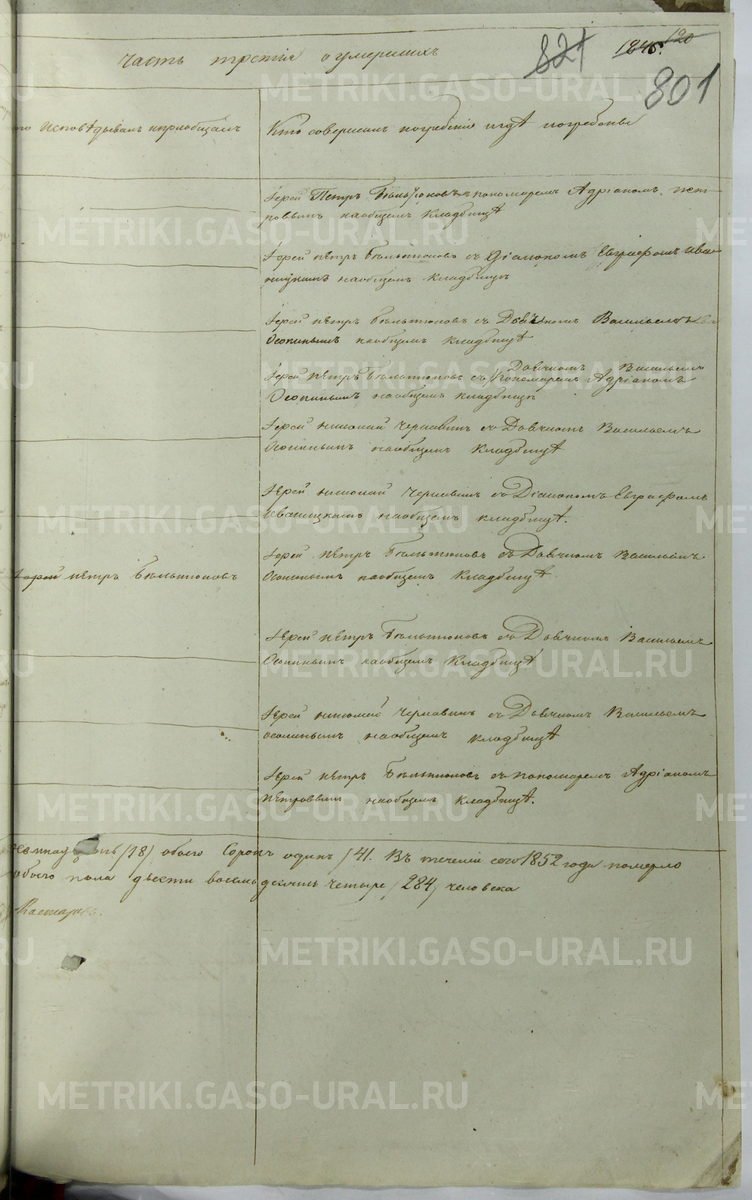 Часть третiя о умершихъ
821
1845.
120
801
Кто исповѣдывалъ и прiобщалъ
Кто совершалъ погребенiе и гдѣ погребены
Iерей Петръ Бѣльтюковъ съ пономаремъ Адрiаномъ Пет-
ровымъ на общемъ кладбищѣ
Iерей Петръ Бѣльтюковъ съ Дiакономъ Евграфомъ Ива-
ницкимъ на общемъ кладбищѣ
Iерей Петръ Бѣльтюковъ съ Дьячкомъ Васильемъ
Осокинымъ на общемъ кладбищѣ
Дьячкомъ Васильемъ
Iерей Петръ Бѣльтюковъ съ Пономаремъ Адрiаномъ
Осокинымъ на общемъ кладбищѣ
Iерей Николай Чернавинъ съ Дьячкомъ Васильемъ
Осокинымъ на общемъ кладбищѣ
Iерей Николай Чернавинъ съ Дiакономъ Евграфомъ
Иваницкимъ на общемъ кладбищѣ.
Iерей Петръ Бѣльтюковъ
Iерей Петръ Бѣльтюковъ съ Дьячкомъ Васильемъ
Осокинымъ на общемъ кладбищѣ
Iерей Петръ Бѣльтюковъ съ Дьячкомъ Васильемъ
Осокинымъ на общемъ кладбищѣ
Iерей Николай Чернавинъ съ Дьячкомъ Васильемъ
Осокинымъ на общемъ кладбищѣ
Iерей Петръ Бѣльтюковъ съ пономаремъ Адрiаномъ
Петровымъ на общемъ кладбищѣ.
/18/ обоего Сорокъ одинъ /41. Въ теченiи сего 1852 года померло
обоего пола двѣсти восемьдесятъ четыре /284/ человека
METRIKI.GASO-URAL.RU